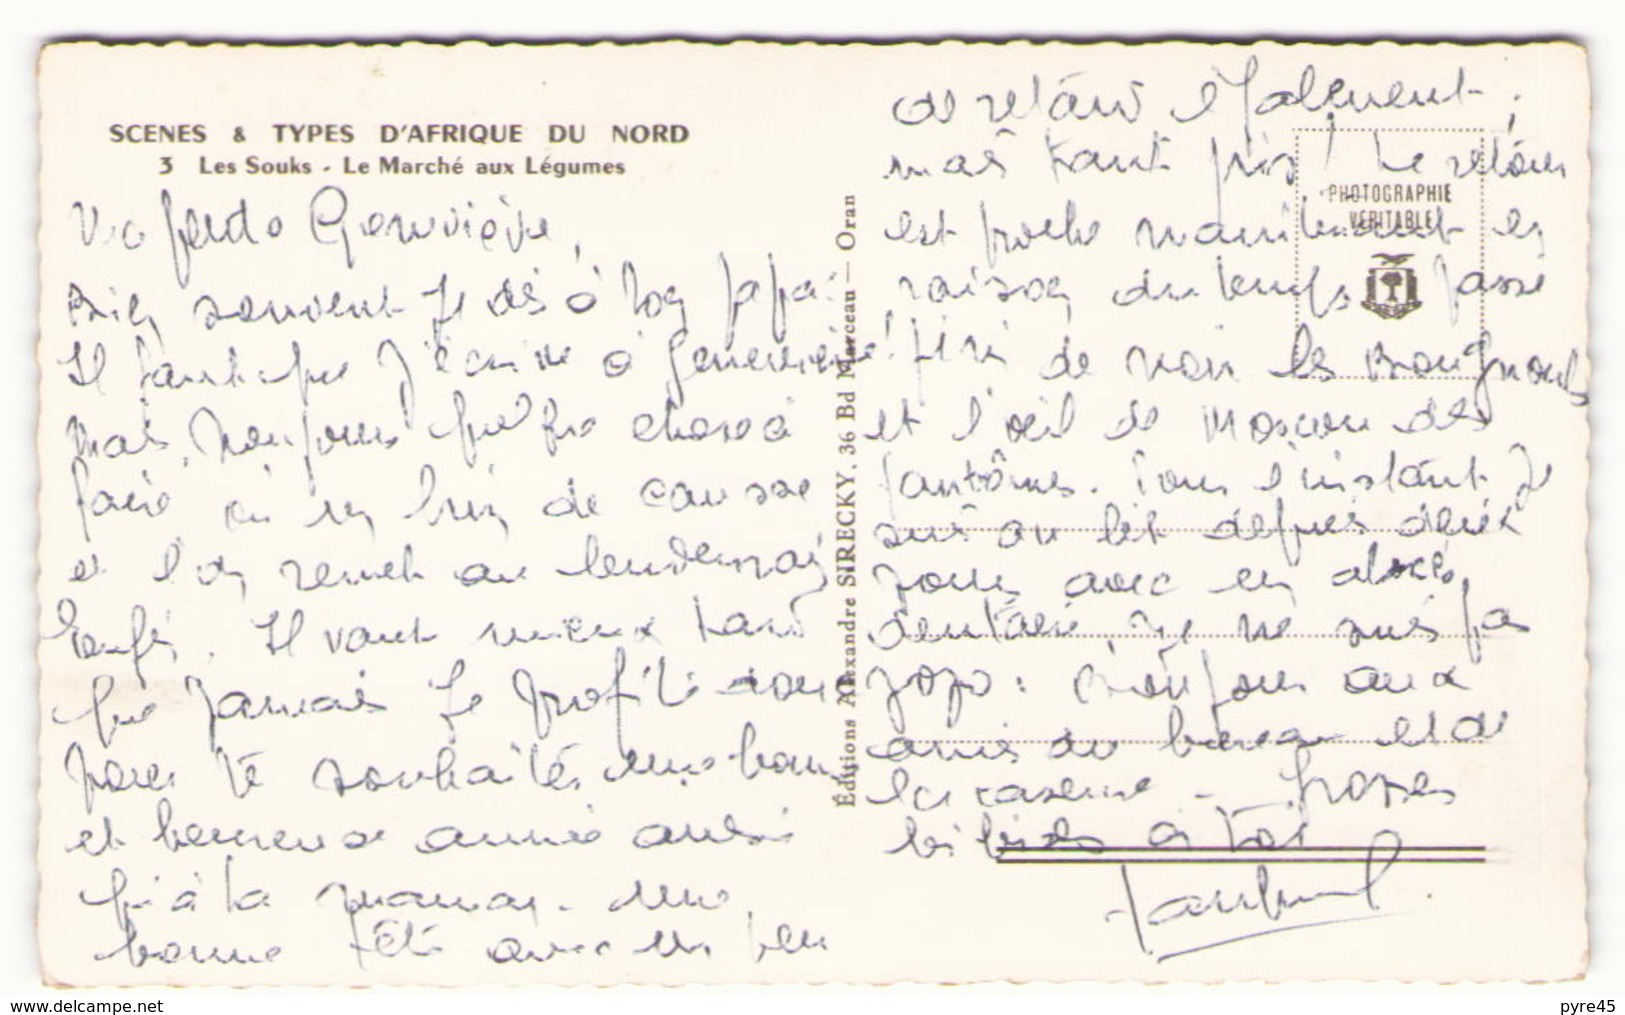 SCENES & TYPES D'AFRIQUE DU NORD
3 Les Souks - Le Marché aux Légumes
Geneviève,
Bien souvent je dis à ton papa:
Il faut que j'écrive à Geneviève!
mais, toujours quelque chose à
faire ou un brin de causse
et l'on remet au lendemain
Enfin. Il vaut mieux tard
que jamais je profite donc
pour te souhaiter une bonne
et heureuse année ainsi
qu'à ta maman. Une
bonne fête avec un peu
de retard également,
mais tant pis! Le retour
est proche maintenant en
raison du temps passé
fini de voir les Bougnouls
et l'oeil de Moscou des
fantômes. Pour l'instant je
suis au lit depuis deux
jours avec un abcès
dentaire, je ne suis pas
jojo: Bonjour aux
amis du bureau et de
la caserne - Grosses
bibises à toi
Éditions Alexandre SIRECKY. 36 Bd Marceau - Oran
PHOTOGRAPHIE
VERITABLE
www.delcampe.net
pyre45